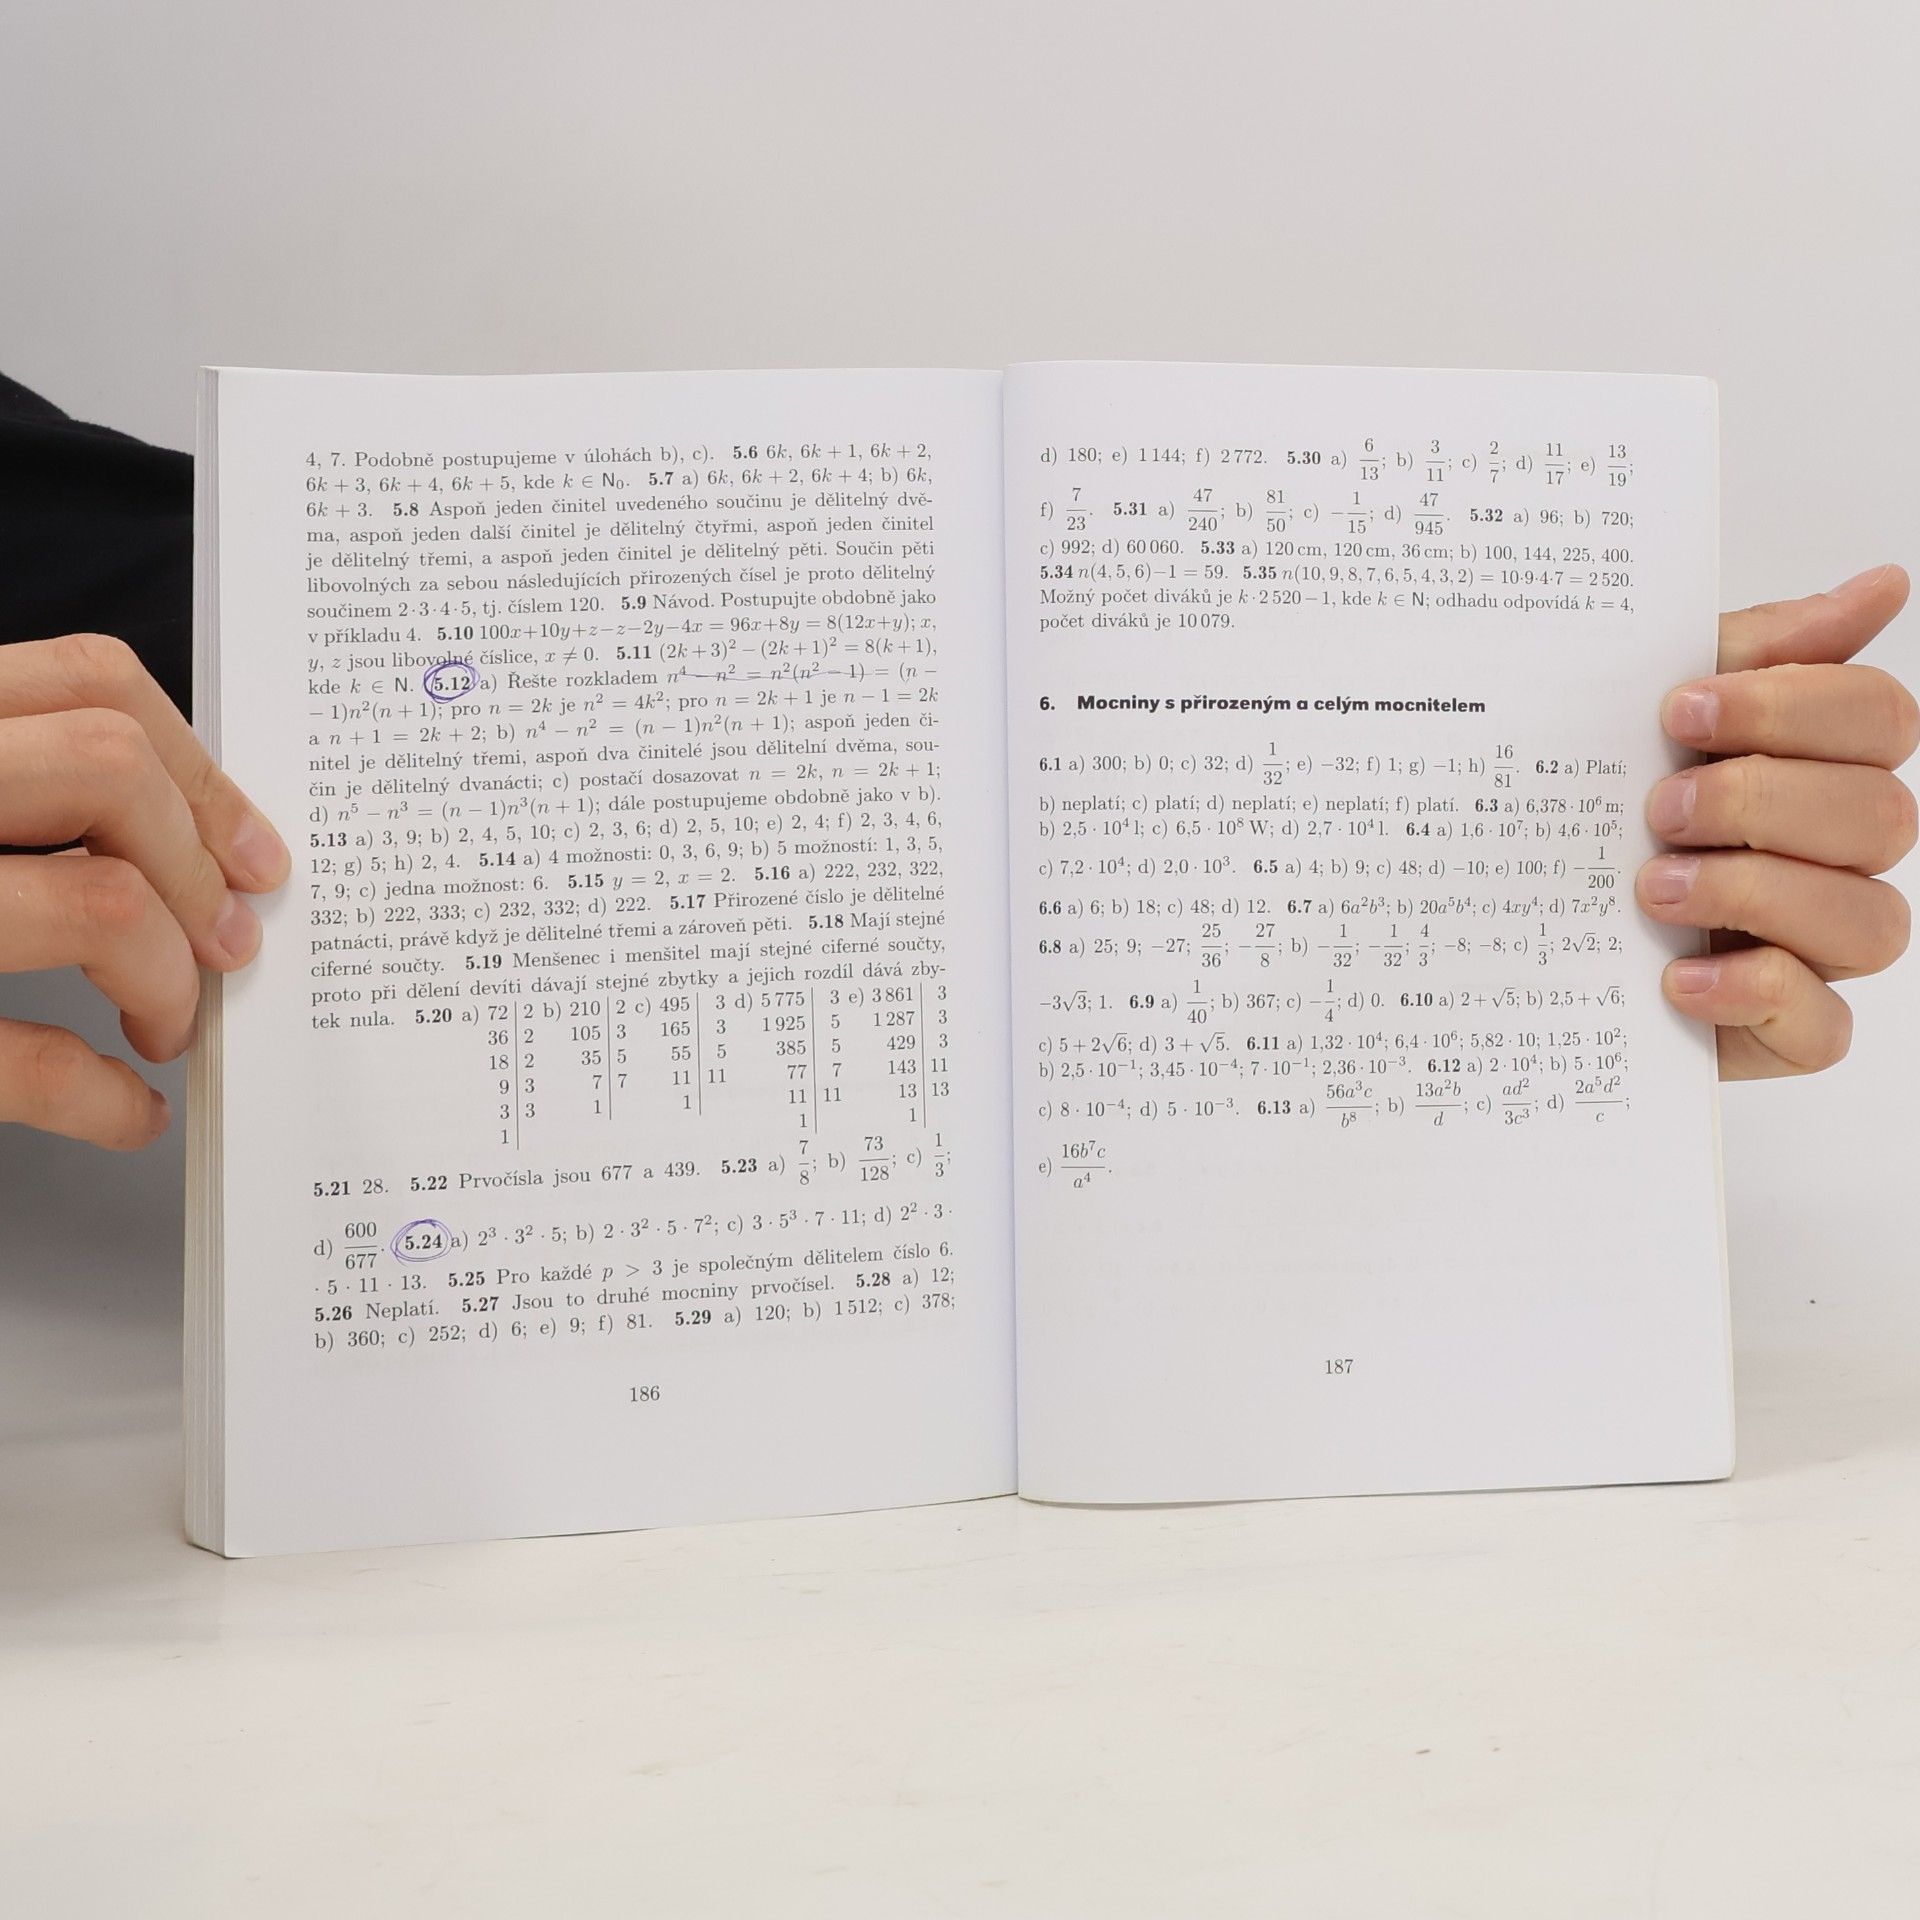 4, 7. Podobně postupujeme v úlohách b), c). 5.6 6k, 6k + 1, 6k + 2,
6k + 3, 6k + 4, 6k + 5, kde k ∈ N₀. 5.7 a) 6k, 6k + 2, 6k + 4; b) 6k,
6k + 3. 5.8 Aspoň jeden činitel uvedeného součinu je dělitelný dvě-
ma, aspoň jeden další činitel je dělitelný čtyřmi, aspoň jeden činitel
je dělitelný třemi, a aspoň jeden činitel je dělitelný pěti. Součin pěti
libovolných za sebou následujících přirozených čísel je proto dělitelný
součinem 2·3·4·5, tj. číslem 120. 5.9 Návod. Postupujte obdobně jako
v příkladu 4. 5.10 100x+10y+z−z−2y−4x = 96x+8y = 8(12x+y); x,
y, z jsou libovolné číslice, x ≠ 0. 5.11 (2k+3)² − (2k+1)² = 8(k+1),
kde k ∈ N. 5.12 a) Řešte rozkladem n⁴ − n² = n²(n² − 1) = (n −
− 1)n²(n + 1); pro n = 2k je n² = 4k²; pro n = 2k + 1 je n − 1 = 2k
a n + 1 = 2k + 2; b) n⁴ − n² = (n − 1)n²(n + 1); aspoň jeden či-
nitel je dělitelný třemi, aspoň dva činitelé jsou dělitelní dvěma, sou-
čin je dělitelný dvanácti; c) postačí dosazovat n = 2k, n = 2k + 1;
d) n⁵ − n³ = (n − 1)n³(n + 1); dále postupujeme obdobně jako v b).
5.13 a) 3, 9; b) 2, 4, 5, 10; c) 2, 3, 6; d) 2, 5, 10; e) 2, 4; f) 2, 3, 4, 6,
12; g) 5; h) 2, 4. 5.14 a) 4 možnosti: 0, 3, 6, 9; b) 5 možností: 1, 3, 5,
7, 9; c) jedna možnost: 6. 5.15 y = 2, x = 2. 5.16 a) 222, 232, 322,
332; b) 222, 333; c) 232, 332; d) 222. 5.17 Přirozené číslo je dělitelné
patnácti, právě když je dělitelné třemi a zároveň pěti. 5.18 Mají stejné
ciferné součty. 5.19 Menšenec i menšitel mají stejné ciferné součty,
proto při dělení devíti dávají stejné zbytky a jejich rozdíl dává zby-
tek nula. 5.20 a) 72 | 2 b) 210 | 2 c) 495 | 3 d) 5 775 | 3 e) 3 861 | 3
36 | 2 105 | 3 165 | 3 1 925 | 5 1 287 | 3
18 | 2 35 | 5 55 | 5 385 | 5 429 | 3
9 | 3 7 | 7 11 | 11 77 | 7 143 | 11
3 | 3 1 | 1 | 11 | 11 13 | 13
1 | 1 | 1 |
5.21 28. 5.22 Prvočísla jsou 677 a 439. 5.23 a) 7/8; b) 73/128; c) 1/3;
d) 600/677. 5.24 a) 2³ · 3² · 5; b) 2 · 3² · 5 · 7²; c) 3 · 5³ · 7 · 11; d) 2² · 3 ·
· 5 · 11 · 13. 5.25 Pro každé p > 3 je společným dělitelem číslo 6.
5.26 Neplatí. 5.27 Jsou to druhé mocniny prvočísel. 5.28 a) 12;
b) 360; c) 252; d) 6; e) 9; f) 81. 5.29 a) 120; b) 1 512; c) 378;
186
d) 180; e) 1 144; f) 2 772. 5.30 a) 6/13; b) 3/11; c) 2/7; d) 11/17; e) 13/19;
f) 7/23. 5.31 a) 47/240; b) 81/50; c) −1/15; d) 47/945. 5.32 a) 96; b) 720;
c) 992; d) 60 060. 5.33 a) 120 cm, 120 cm, 36 cm; b) 100, 144, 225, 400.
5.34 n(4, 5, 6)−1 = 59. 5.35 n(10, 9, 8, 7, 6, 5, 4, 3, 2) = 10·9·4·7 = 2 520.
Možný počet diváků je k·2 520 − 1, kde k ∈ N; odhadu odpovídá k = 4,
počet diváků je 10 079.
6. Mocniny s přirozeným a celým mocnitelem
6.1 a) 300; b) 0; c) 32; d) 1/32; e) −32; f) 1; g) −1; h) 16/81. 6.2 a) Platí;
b) neplatí; c) platí; d) neplatí; e) neplatí; f) platí. 6.3 a) 6,378 · 10⁶ m;
b) 2,5 · 10⁴ l; c) 6,5 · 10⁸ W; d) 2,7 · 10⁴ l. 6.4 a) 1,6 · 10⁷; b) 4,6 · 10⁵;
c) 7,2 · 10⁴; d) 2,0 · 10³. 6.5 a) 4; b) 9; c) 48; d) −10; e) 100; f) −1/200.
6.6 a) 6; b) 18; c) 48; d) 12. 6.7 a) 6a²b³; b) 20a⁵b⁴; c) 4xy⁴; d) 7x²y⁸.
6.8 a) 25; 9; −27; 25/36; −27/8; b) −1/32; −1/32; 4/3; −8; −8; c) 1/3; 2√2; 2;
−3√3; 1. 6.9 a) 1/40; b) 367; c) −1/4; d) 0. 6.10 a) 2 + √5; b) 2,5 + √6;
c) 5 + 2√6; d) 3 + √5. 6.11 a) 1,32 · 10⁴; 6,4 · 10⁶; 5,82 · 10; 1,25 · 10²;
b) 2,5 · 10⁻¹; 3,45 · 10⁻⁴; 7 · 10⁻¹; 2,36 · 10⁻³. 6.12 a) 2 · 10⁴; b) 5 · 10⁶;
c) 8 · 10⁻⁴; d) 5 · 10⁻³. 6.13 a) 56a³c/b⁸; b) 13a²b/d; c) ad²/3c³; d) 2a⁵d²/c;
e) 16b⁷c/a⁴.
187